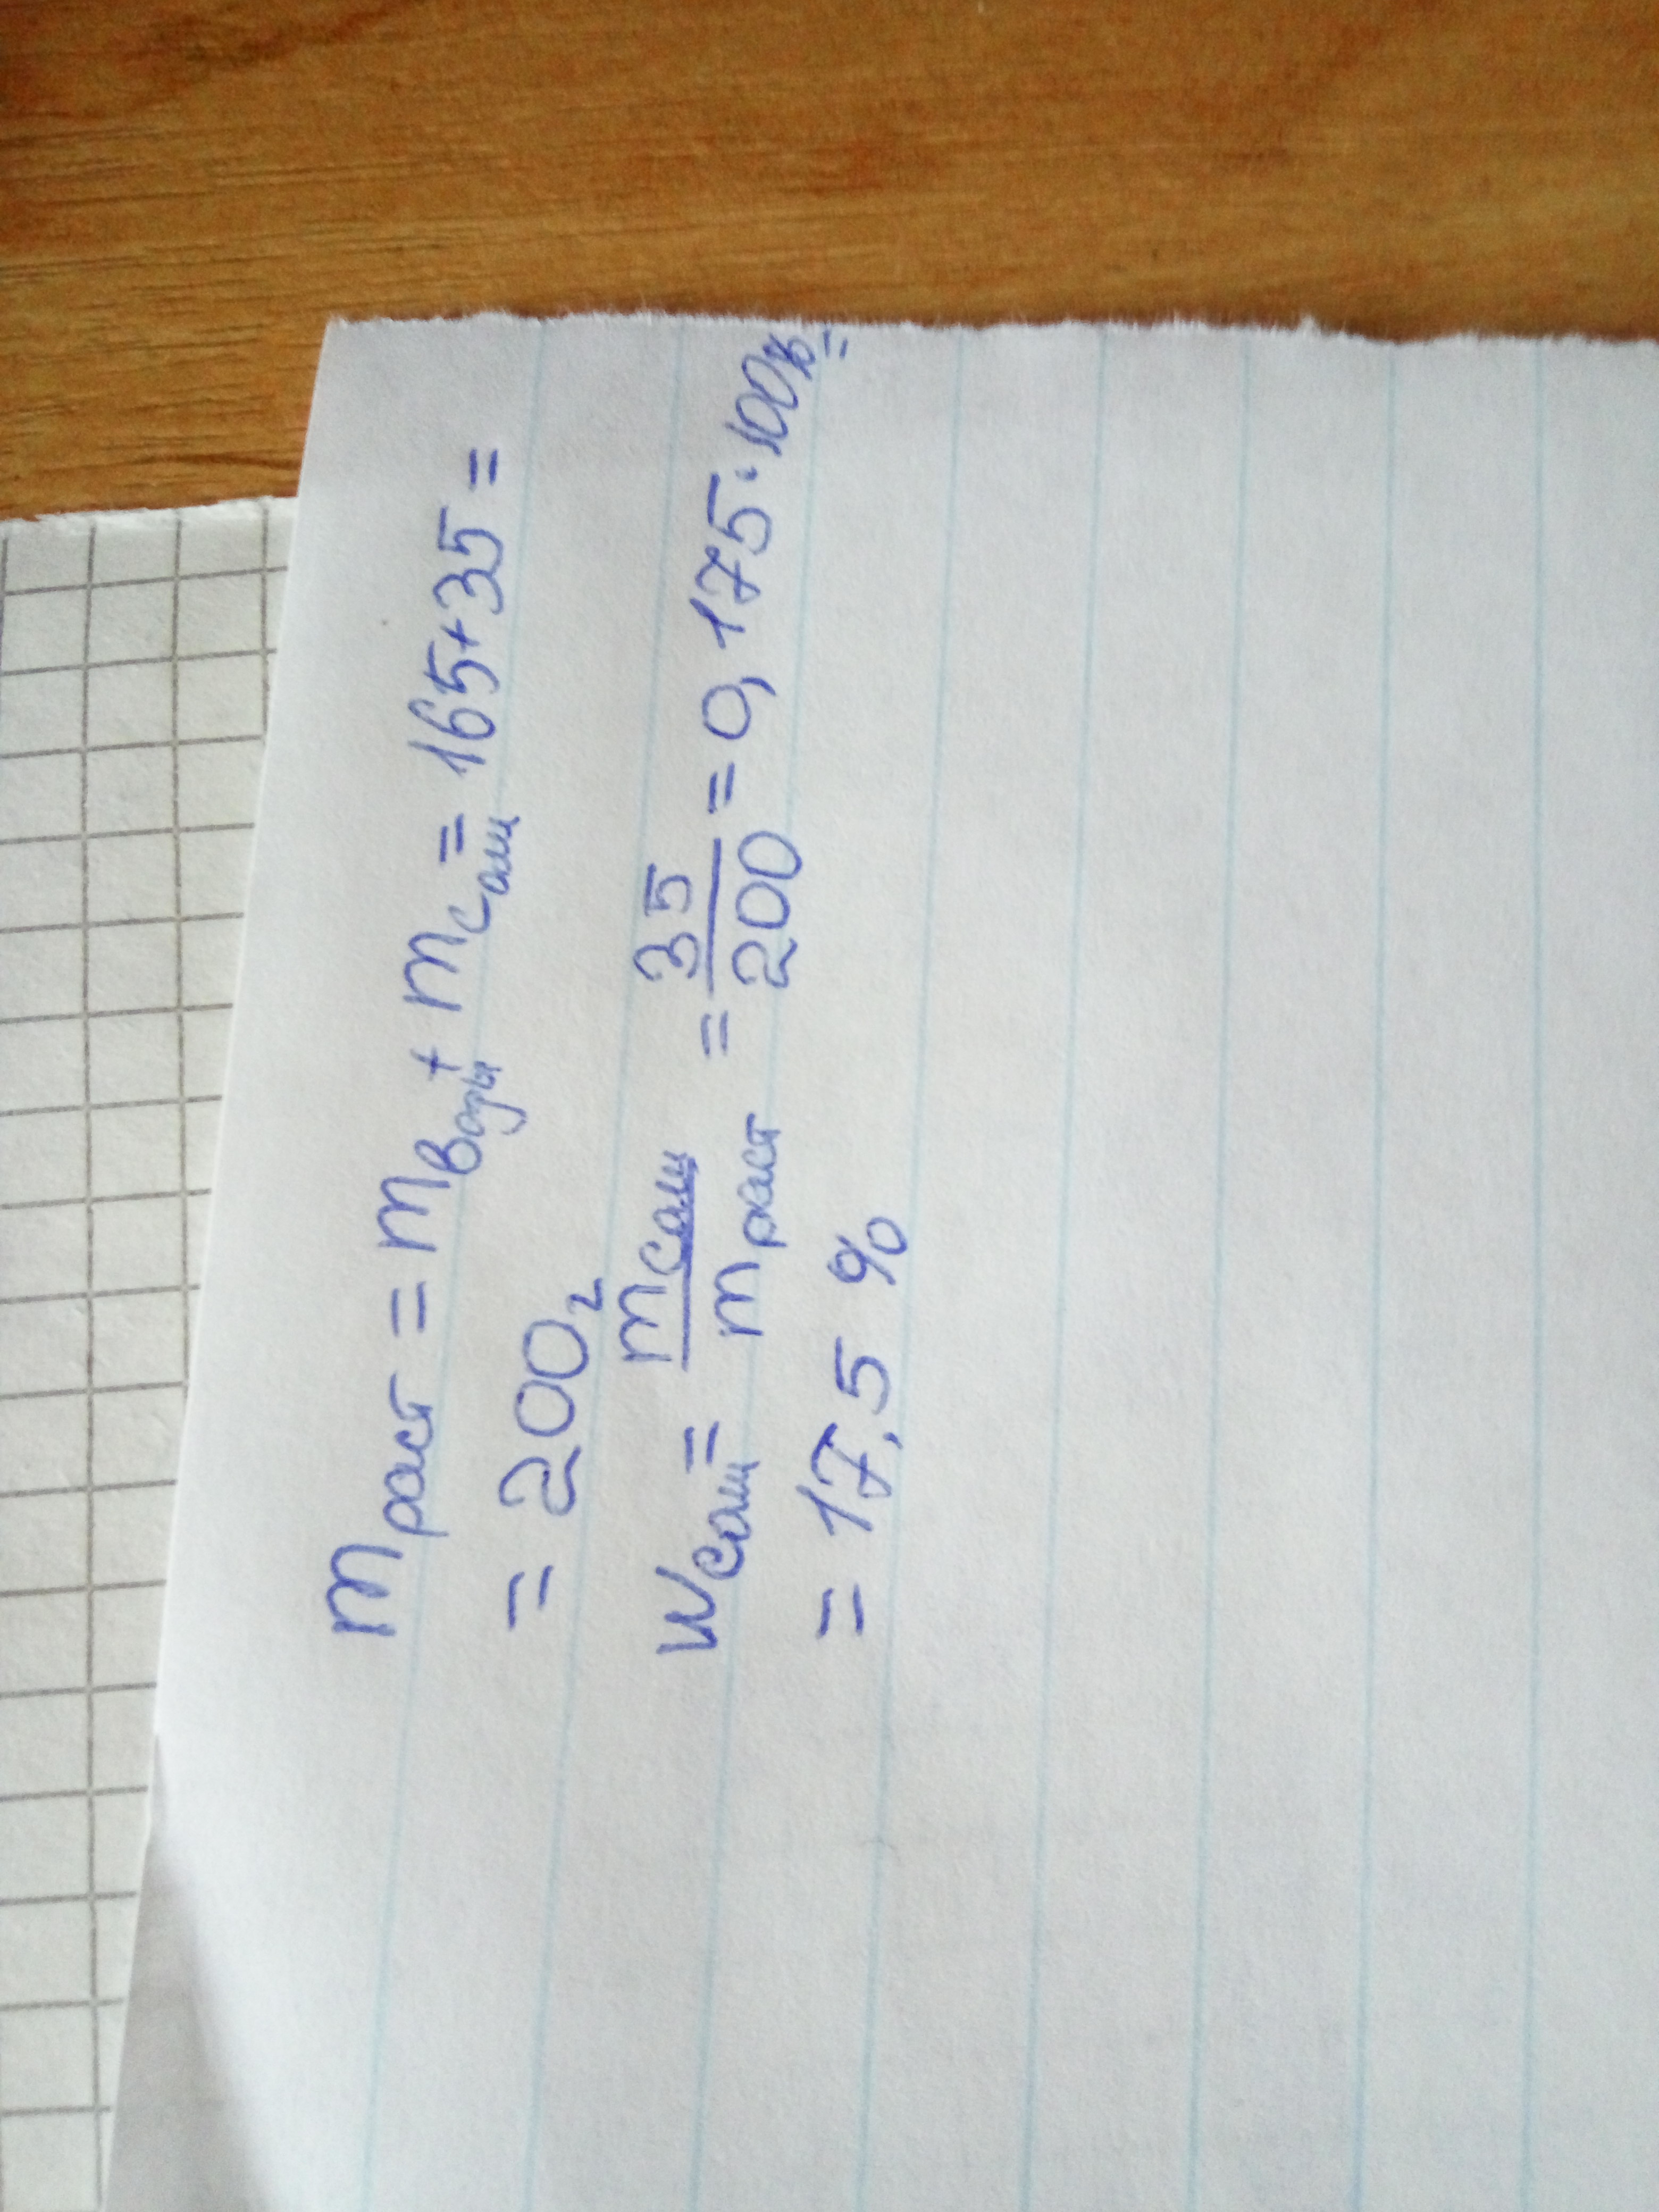 m раст = m воды + m сащ = 165+35 =
= 200г
w сащ = m сащ / m раст = 35/200 = 0,175·100% =
= 17,5 %